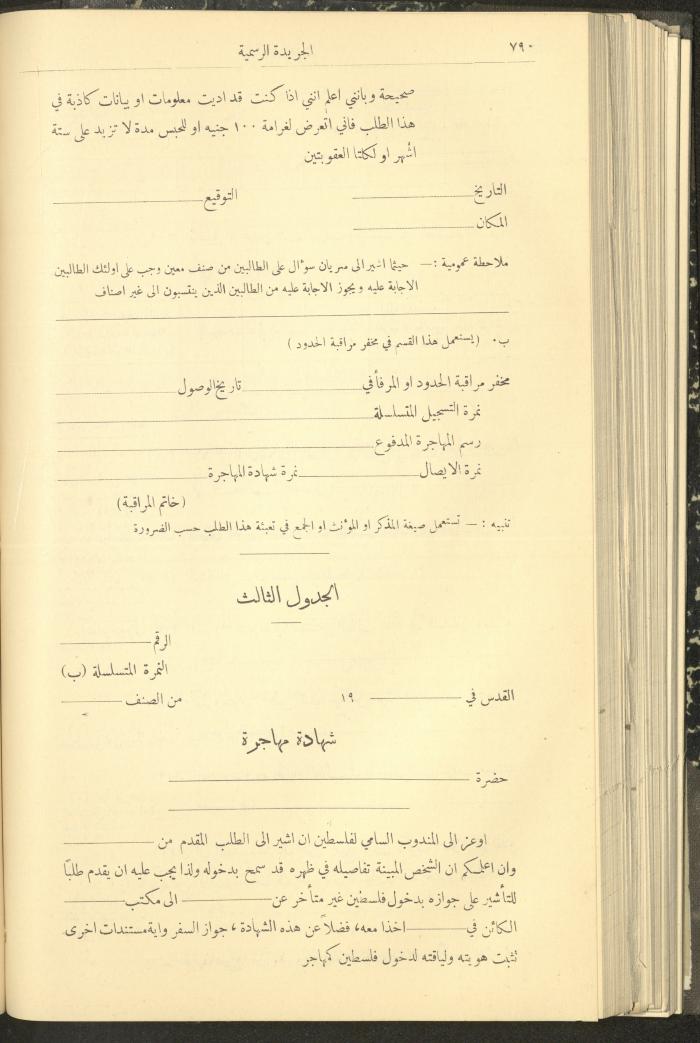 ٧٩٠
الجريدة الرسمية
صحيحة وبانني اعلم انني اذا كنت قد اديت معلومات او بيانات كاذبة في
هذا الطلب فاني اتعرض لغرامة ١٠٠ جنيه او للحبس مدة لا تزيد على ستة
اشهر او لكلتا العقوبتين
التاريخ ــــــــــ التوقيع ــــــــــ
المكان ــــــــــ
ملاحظة عمومية :— حيثما اشير الى سريان سؤال على الطالبين من صنف معين وجب على اولئك الطالبين
الاجابة عليه ويجوز الاجابة عليه من الطالبين الذين ينتسبون الى غير اصناف
ب. (يستعمل هذا القسم في مخفر مراقبة الحدود)
مخفر مراقبة الحدود او المرفأ في ــــــــــ تاريخ الوصول ــــــــــ
نمرة التسجيل المتسلسلة ــــــــــ
رسم المهاجرة المدفوع ــــــــــ
نمرة الايصال ــــــــــ نمرة شهادة المهاجرة ــــــــــ
(خاتم المراقبة)
تنبيه :— تستعمل صيغة المذكر او المؤنث او الجمع في تعبئة هذا الطلب حسب الضرورة
الجدول الثالث
الرقم ــــــــــ
النمرة المتسلسلة (ب)
القدس في ــــــــــ ١٩ من الصنف ــــــــــ
شهادة مهاجرة
حضرة ــــــــــ
اوعز الى المندوب السامي لفلسطين ان اشير الى الطلب المقدم من ــــــــــ
وان اعلمكم ان الشخص المبينة تفاصيله في ظهره قد سمح بدخوله ولذا يجب عليه ان يقدم طلبًا
للتأشير على جوازه بدخول فلسطين غير متأخر عن ــــــــــ الى مكتب ــــــــــ
الكائن في ــــــــــ اخذا معه، فضلاً عن هذه الشهادة، جواز السفر واية مستندات اخرى
تثبت هويته ولياقته لدخول فلسطين كمهاجر